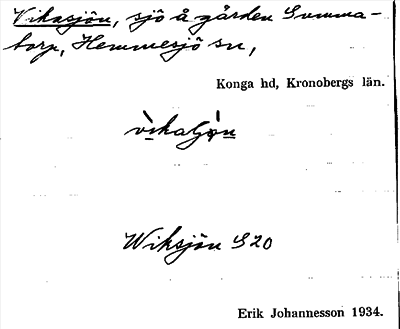 Vikasjön, sjö å gården Gumma-
torp, Hemmesjö sn,
Konga hd, Kronobergs län.
Wiksjön S 20
Erik Johannesson 1934.